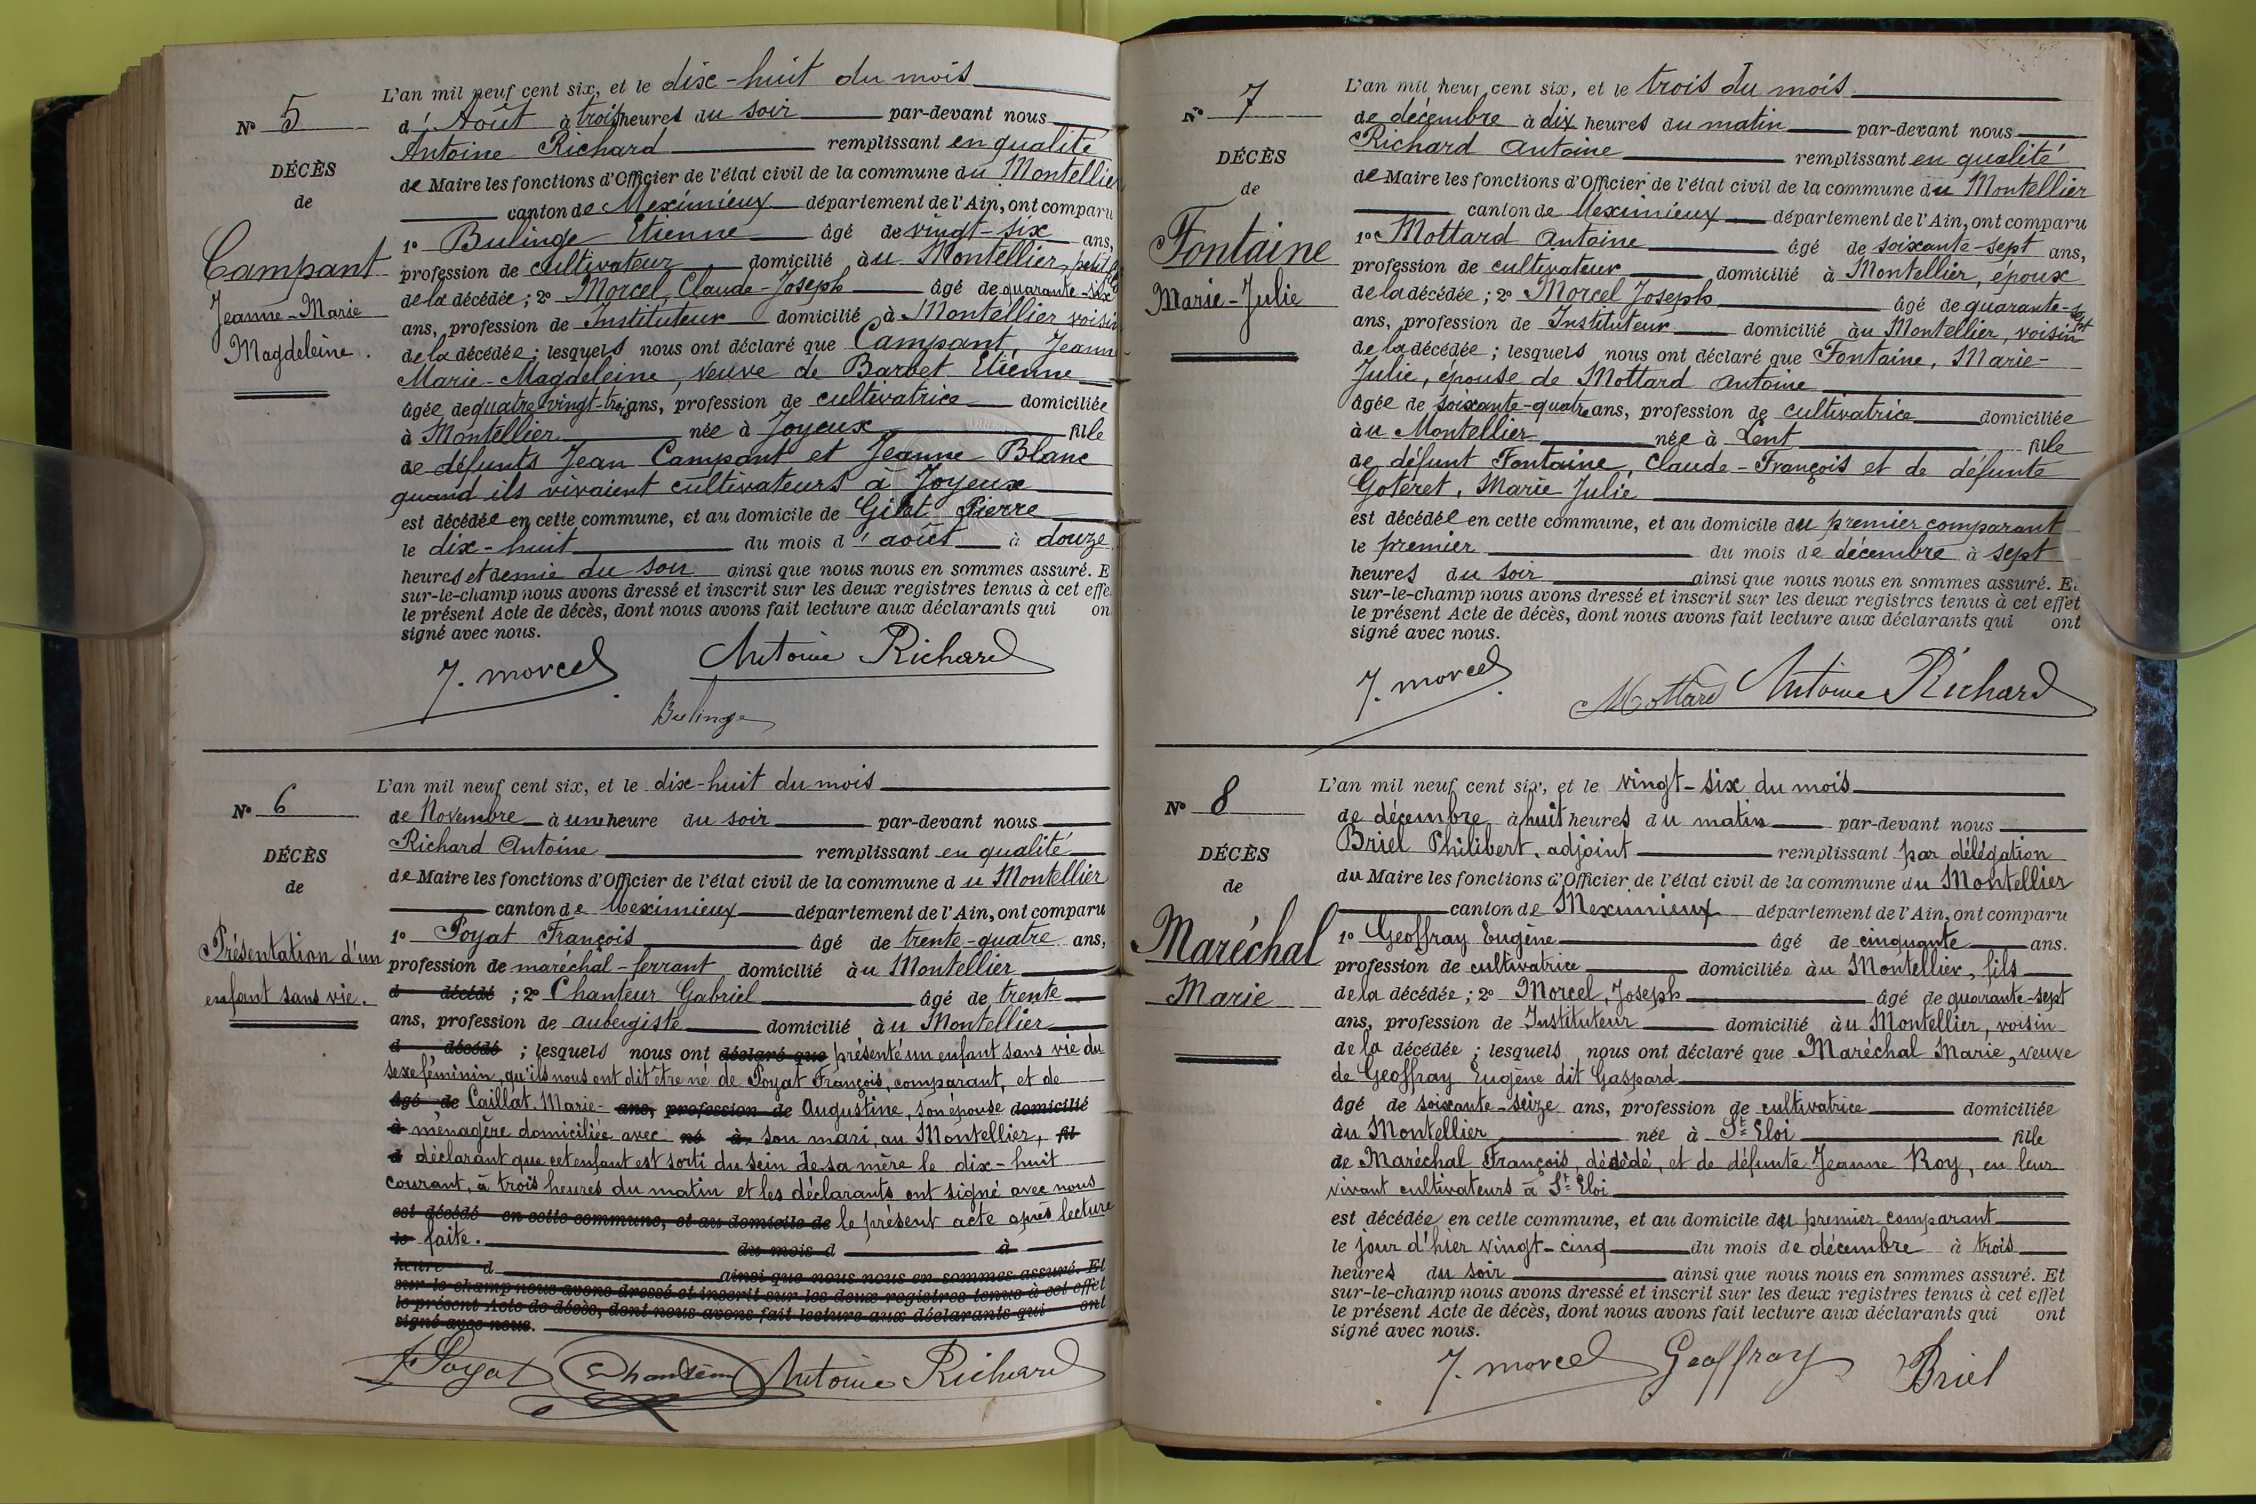 N° 5
DÉCÈS
de
Campant
Jeanne-Marie
Magdeleine.
L'an mil neuf cent six, et le dix-huit du mois
d'Août à trois heures du soir par-devant nous
Antoine Richard remplissant en qualité
de Maire les fonctions d'Officier de l'état civil de la commune du Montellier
canton de Meximieux département de l'Ain, ont comparu
1° Bulinge Etienne âgé de vingt-six ans,
profession de cultivateur domicilié au Montellier, petit fils
de la décédée ; 2° Morcel, Claude-Joseph âgé de quarante-six
ans, profession de Instituteur domicilié à Montellier voisin
de la décédée ; lesquels nous ont déclaré que Campant Jeanne
Marie-Magdeleine, veuve de Barbet Etienne
âgée de quatre-vingt-trois ans, profession de cultivatrice domiciliée
à Montellier née à Joyeux fille
de défunts Jean Campant et Jeanne Blanc
quand ils vivaient cultivateurs à Joyeux
est décédée en cette commune, et au domicile de Pierre
le dix-huit du mois d'août à douze
heures et demie du soir ainsi que nous nous en sommes assuré. E
sur-le-champ nous avons dressé et inscrit sur les deux registres tenus à cet effe
le présent Acte de décès, dont nous avons fait lecture aux déclarants qui on
signé avec nous.
J. Morcel Antoine Richard
Bulinge
N° 6
DÉCÈS
de
Présentation d'un
enfant sans vie.
L'an mil neuf cent six, et le dix-huit du mois
de Novembre à une heure du soir par-devant nous
Richard Antoine remplissant en qualité
de Maire les fonctions d'Officier de l'état civil de la commune du Montellier
canton de Meximieux département de l'Ain, ont comparu
1° Poyat François âgé de trente-quatre ans,
profession de maréchal-ferrant domicilié au Montellier
d décédé ; 2° Chanteur Gabriel âgé de trente
ans, profession de aubergiste domicilié au Montellier
d décédé ; lesquels nous ont déclaré que présenté un enfant sans vie du
sexe féminin, qu'ils nous ont dit être né de Poyat François, comparant, et de
âgé de Caillat Marie- ans, profession de Augustine, son épouse domicilié
à ménagère domiciliée avec né à son mari, au Montellier, fil
d déclarant que cet enfant est sorti du sein de sa mère le dix-huit
courant, à trois heures du matin et les déclarants ont signé avec nous
est décédé en cette commune, et au domicile de le présent acte après lecture
le faite. du mois d à
heure d ainsi que nous nous en sommes assuré. Et
sur-le-champ nous avons dressé et inscrit sur les deux registres tenus à cet effet
le présent Acte de décès, dont nous avons fait lecture aux déclarants qui ont
signé avec nous.
Poyat Chanteur Antoine Richard
N° 7
DÉCÈS
de
Fontaine
Marie-Julie
L'an mil neuf cent six, et le trois du mois
de décembre à dix heures du matin par-devant nous
Richard Antoine remplissant en qualité
de Maire les fonctions d'Officier de l'état civil de la commune du Montellier
canton de Meximieux département de l'Ain, ont comparu
1° Mottard Antoine âgé de soixante-sept ans,
profession de cultivateur domicilié à Montellier, époux
de la décédée ; 2° Morcel Joseph âgé de quarante-sept
ans, profession de Instituteur domicilié au Montellier, voisin
de la décédée ; lesquels nous ont déclaré que Fontaine, Marie-
Julie, épouse de Mottard Antoine
âgée de soixante-quatre ans, profession de cultivatrice domiciliée
au Montellier née à Lent fille
de défunt Fontaine, Claude-François et de défunte
Goteret, Marie Julie
est décédée en cette commune, et au domicile du premier comparant
le premier du mois de décembre à sept
heures du soir ainsi que nous nous en sommes assuré. E
sur-le-champ nous avons dressé et inscrit sur les deux registres tenus à cet effet
le présent Acte de décès, dont nous avons fait lecture aux déclarants qui ont
signé avec nous.
J. Morcel Mottard Antoine Richard
N° 8
DÉCÈS
de
Maréchal
Marie
L'an mil neuf cent six, et le vingt-six du mois
de décembre à huit heures du matin par-devant nous
Briel Philibert, adjoint remplissant par délégation
du Maire les fonctions d'Officier de l'état civil de la commune du Montellier
canton de Meximieux département de l'Ain, ont comparu
1° Geoffray Eugène âgé de cinquante ans.
profession de cultivatrice domiciliée au Montellier, fils
de la décédée ; 2° Morcel, Joseph âgé de quarante-sept
ans, profession de Instituteur domicilié au Montellier, voisin
de la décédée ; lesquels nous ont déclaré que Maréchal Marie, veuve
de Geoffray Eugène dit Gaspard
âgé de soixante-seize ans, profession de cultivatrice domiciliée
au Montellier née à St Eloi fille
de Maréchal François, décédé, et de défunte Jeanne Roy, en leur
vivant cultivateurs à St Eloi
est décédée en cette commune, et au domicile du premier comparant
le jour d'hier vingt-cinq du mois de décembre à trois
heures du soir ainsi que nous nous en sommes assuré. Et
sur-le-champ nous avons dressé et inscrit sur les deux registres tenus à cet effet
le présent Acte de décès, dont nous avons fait lecture aux déclarants qui ont
signé avec nous.
J. Morcel Geoffray Briel